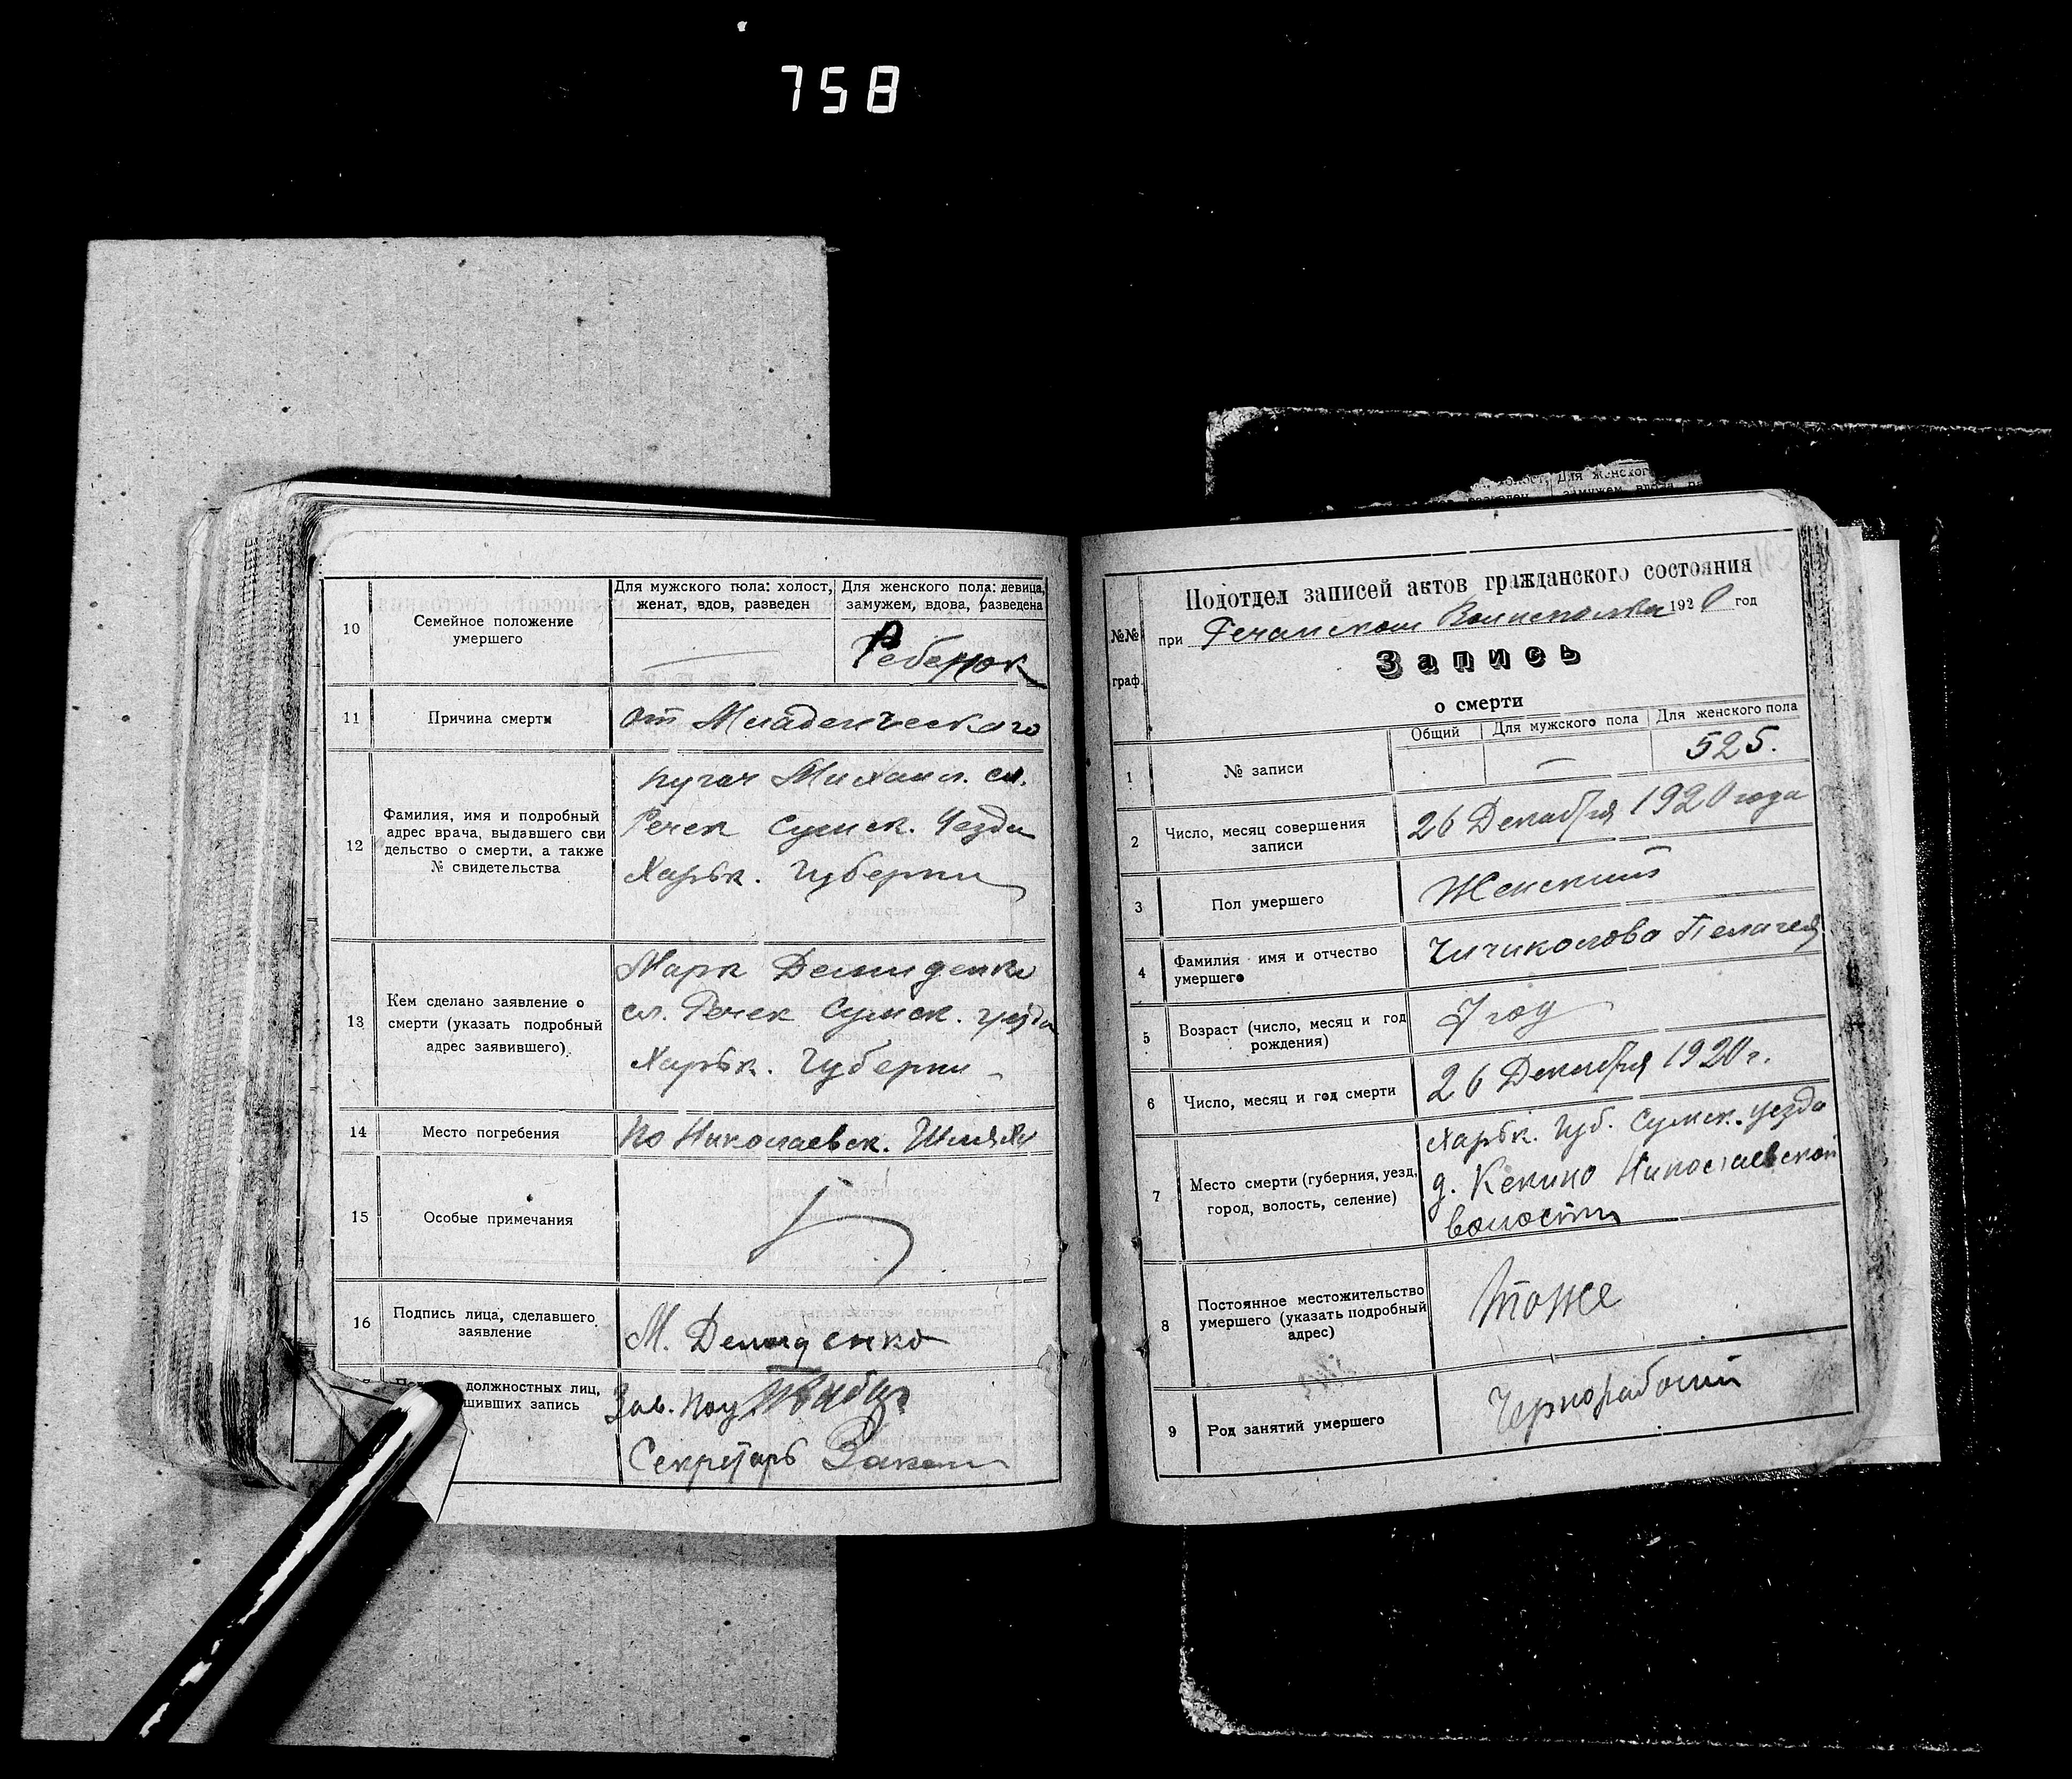 758
10
Семейное положение
умершего
Для мужского пола: холост,
женат, вдов, разведен
Для женского пола: девица,
замужем, вдова, разведена
—
Ребенок
11
Причина смерти
от Младенческого
12
Фамилия, имя и подробный
адрес врача, выдавшего сви
дельство о смерти, а также
№ свидетельства
Пугач Михаил. сл.
Речек Сумск. Уезда
Харьк. Губерни
13
Кем сделано заявление о
смерти (указать подробный
адрес заявившего).
Марк Демиденко
сл. Речек Сумск. уезда
Харьк. Губерни
14
Место погребения
по Николаевск. Шляху
15
Особые примечания
16
Подпись лица, сделавшего
заявление
М. Демиденко
должностных лиц,
шивших запись
Зав. Под
Секретарь
№№
граф.
Подотдел записей актов гражданского состояния
при Речанском Волисполкоме 1920 год
Запись
о смерти
1
№ записи
Общий
Для мужского пола
Для женского пола
—
525.
2
Число, месяц совершения
записи
26 Декабря 1920 года
3
Пол умершего
Женский
4
Фамилия имя и отчество
умершего
Чичиколова Пелагея
5
Возраст (число, месяц и год
рождения)
1 год
6
Число, месяц и год смерти
26 Декабря 1920 г.
7
Место смерти (губерния, уезд,
город, волость, селение)
Харьк. Губ. Сумск. уезда
д. Кекино Николаевской
волости
8
Постоянное местожительство
умершего (указать подробный
адрес)
тоже
9
Род занятий умершего
Чернорабочий